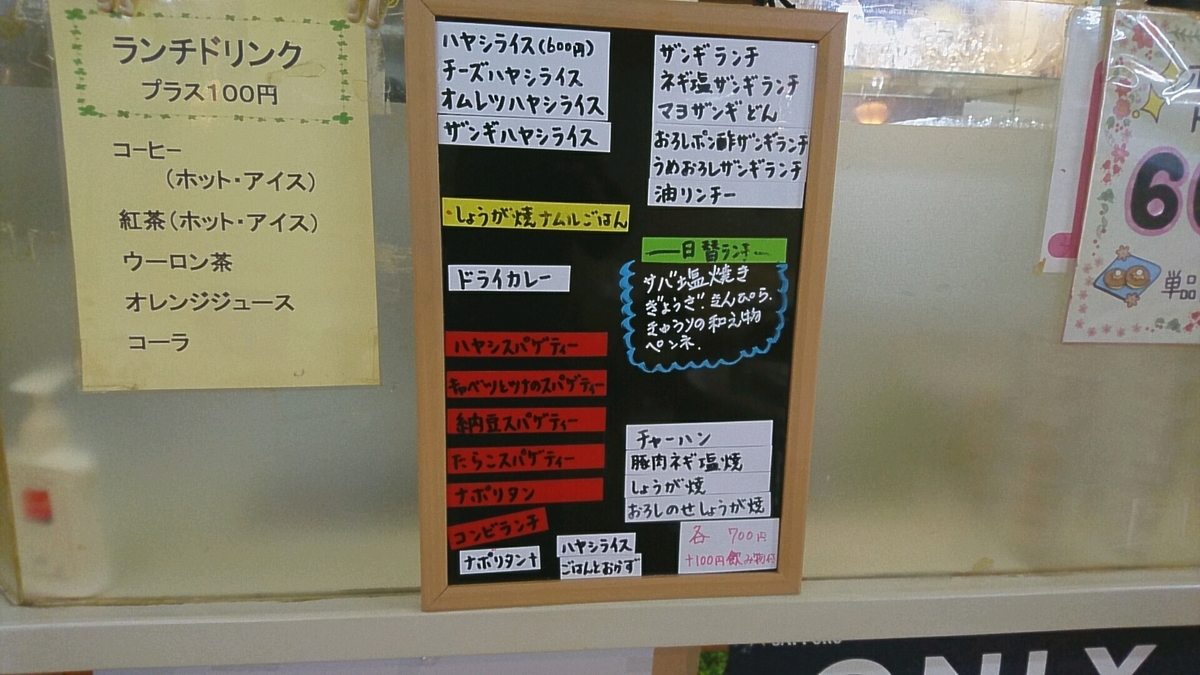 ランチドリンク
プラス100円
コーヒー
(ホット・アイス)
紅茶(ホット・アイス)
ウーロン茶
オレンジジュース
コーラ
ハヤシライス(600円)
チーズハヤシライス
オムレツハヤシライス
ザンギハヤシライス
しょうが焼ナムルごはん
ドライカレー
ハヤシスパゲティー
キャベツとツナのスパゲティー
納豆スパゲティー
たらこスパゲティー
ナポリタン
コンビランチ
ナポリタン+
ハヤシライス
ごはんとおかず
ザンギランチ
ネギ塩ザンギランチ
マヨザンギどん
おろしポン酢ザンギランチ
うめおろしザンギランチ
油リンチー
日替ランチ
サバ塩焼き
ぎょうざ.きんぴら.
きゅうりの和え物
ペンネ.
チャーハン
豚肉ネギ塩焼
しょうが焼
おろしのせしょうが焼
各 700円
+100円飲み物付
単品